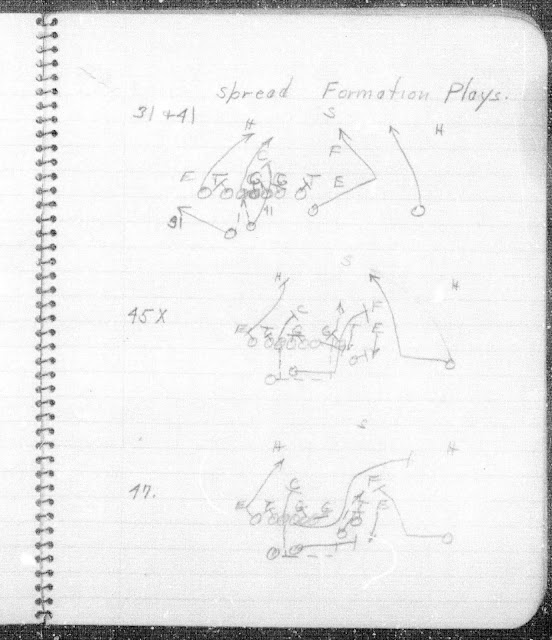 spread Formation Plays.
31 + 41
H S H
C F
E T G G T E
31 41
S
H H
45 X
C F
E T G G T E
S
H H
47.
C F
E T G G T E